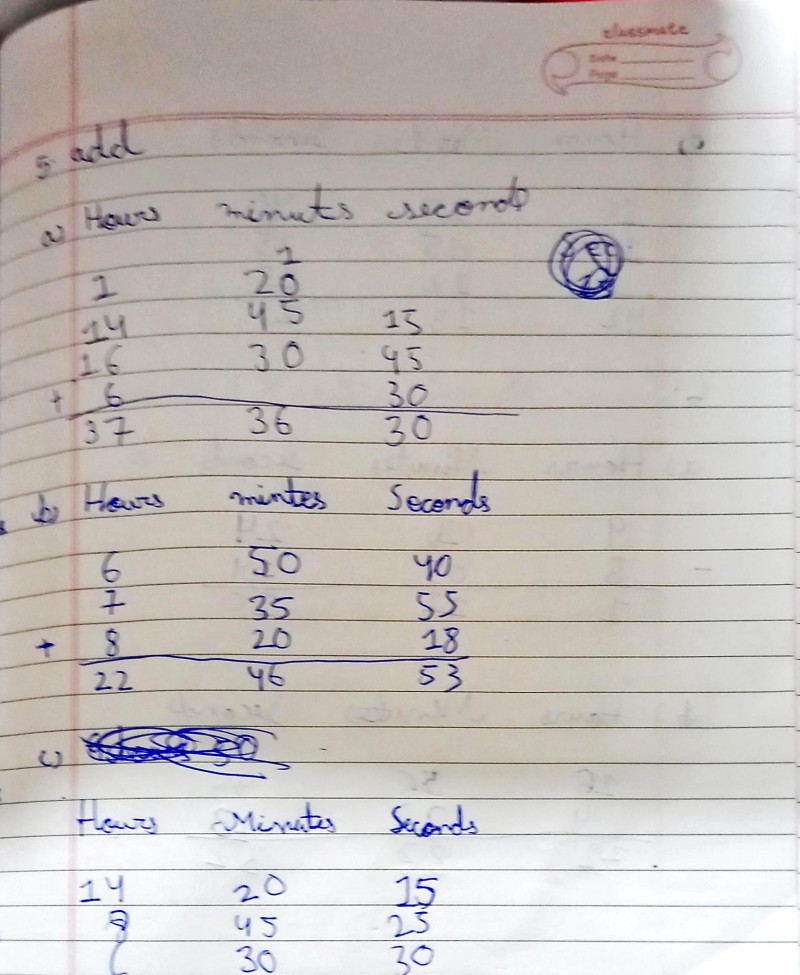 classmate
Date
Page
5. add
a) Hours minuts seconds
1
1 20
14 45 15
16 30 45
+ 6 30
37 36 30
b) Hours mintes Seconds
6 50 40
7 35 55
+ 8 20 18
22 46 53
c)
Hours Minutes Seconds
14 20 15
8 45 25
30 30